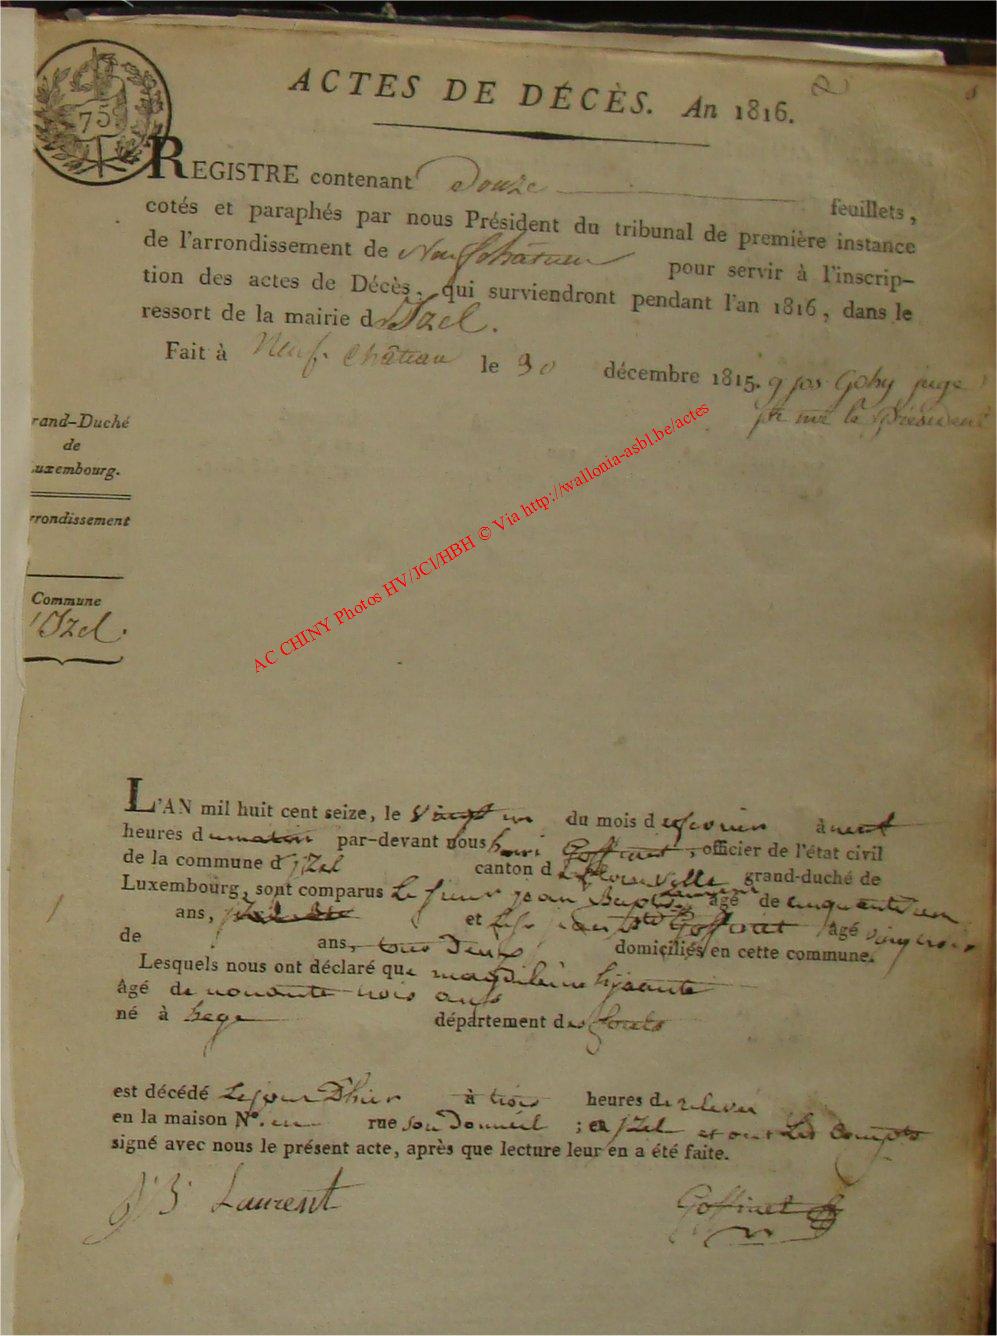 ACTES DE DÉCÈS. An 1816.
75
REGISTRE contenant Douze feuillets,
cotés et paraphés par nous Président du tribunal de première instance
de l'arrondissement de Neufchateau pour servir à l'inscrip-
tion des actes de Décès, qui surviendront pendant l'an 1816, dans le
ressort de la mairie d'Izel.
Fait à Neuf-Château le 30 décembre 1815. Gofry juge
pr le Président
rand-Duché
de
uxembourg.
rrondissement
Commune
d'Izel.
AC CHINY Photos HV/JCl/HBH © Via http://wallonia-asbl.be/actes
L'AN mil huit cent seize, le vingt un du mois de à neuf
heures du matin par-devant nous henri Goffinet, officier de l'état civil
de la commune d'jzel canton de florenville grand-duché de
Luxembourg, sont comparus le sieur jean Baptiste Laurent âgé de cinquante un
1
ans, et Goffinet âgé vingt trois
de ans, tous deux domiciliés en cette commune.
Lesquels nous ont déclaré que magdeleine
âgé de nonante trois ans
né à département des forets
est décédé le jour D'hier à trois heures de relevée
en la maison N°. rue ; à jzel et ont Les
signé avec nous le présent acte, après que lecture leur en a été faite.
J B Laurent Goffinet